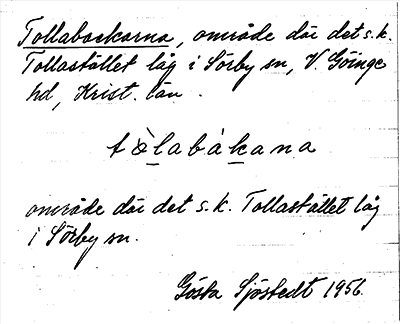 Tollabackarna, område där det s.k.
Tollastället låg i Sörby sn, V. Göinge
hd, Krist. län.
tòlabàkana
område där det s.k. Tollastället låg
i Sörby sn.
Gösta Sjöstedt 1956.